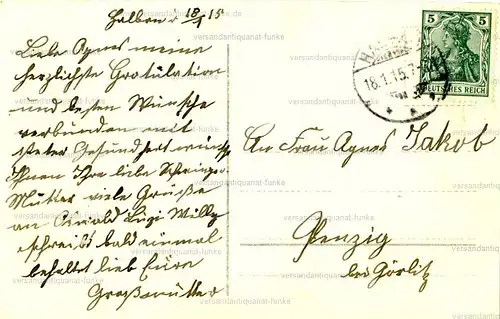 Halbau d. 18/1 15
Liebe Agnes meine
herzlichste Gratulation
und besten Wünsche
verbunden mit
steter Gesundheit wünscht
Ihnen Ihre liebe Schwieger-
Mutter viele Grüße
an Oswald Luzi Willy
schreibt bald einmal
behaltet lieb Eure
Großmutter
5 5
DEUTSCHES REICH
18.1.15.7
An Frau Agnes Jakob
Penzig
bei Görlitz
versandantiquariat-funke